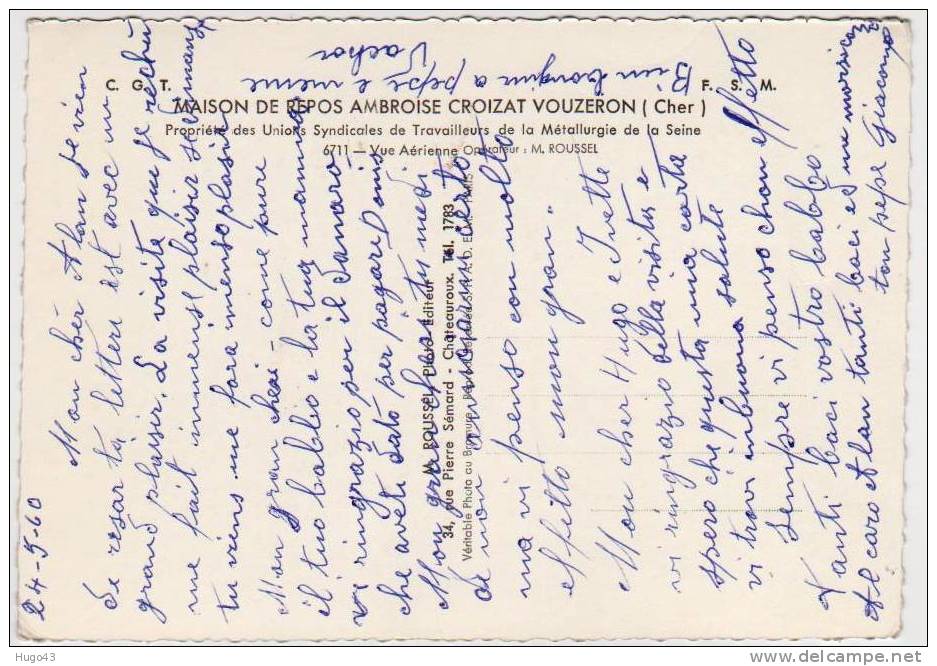 C. G. T.
F. S. M.
MAISON DE REPOS AMBROISE CROIZAT VOUZERON ( Cher )
Propriété des Unions Syndicales de Travailleurs de la Métallurgie de la Seine
6711 — Vue Aérienne Opérateur : M. ROUSSEL
M. ROUSSEL, Photo-Editeur
34, rue Pierre Sémard - Châteauroux. Tél. 1783
Véritable Photo au Bromure
24-5-60
Mon chér Alan je vien
de resar ta lettera est avec un
grand plaisir. La visite que je rechu
me fait immense plaisir se emang
tu viens me fara menso plasir
Mon gran cheri - come pure
il tuo babbo e la tua mamma
vi ringrazio per il damaro
che aveti dato per pagare
Mon gran cheri tu medi
de non
ma vi penso con molto
Affetto mon gran "
Mon cher Hugo e Ivette
vi ringrazio della visita e
spero che questa mia carta
vi trovi in buona salute
sempre vi penso chon effetto
Tanti baci vostro babbo
Al caro Alan tanti baci
ton pepe Giacomo
Bien a pepe e meme